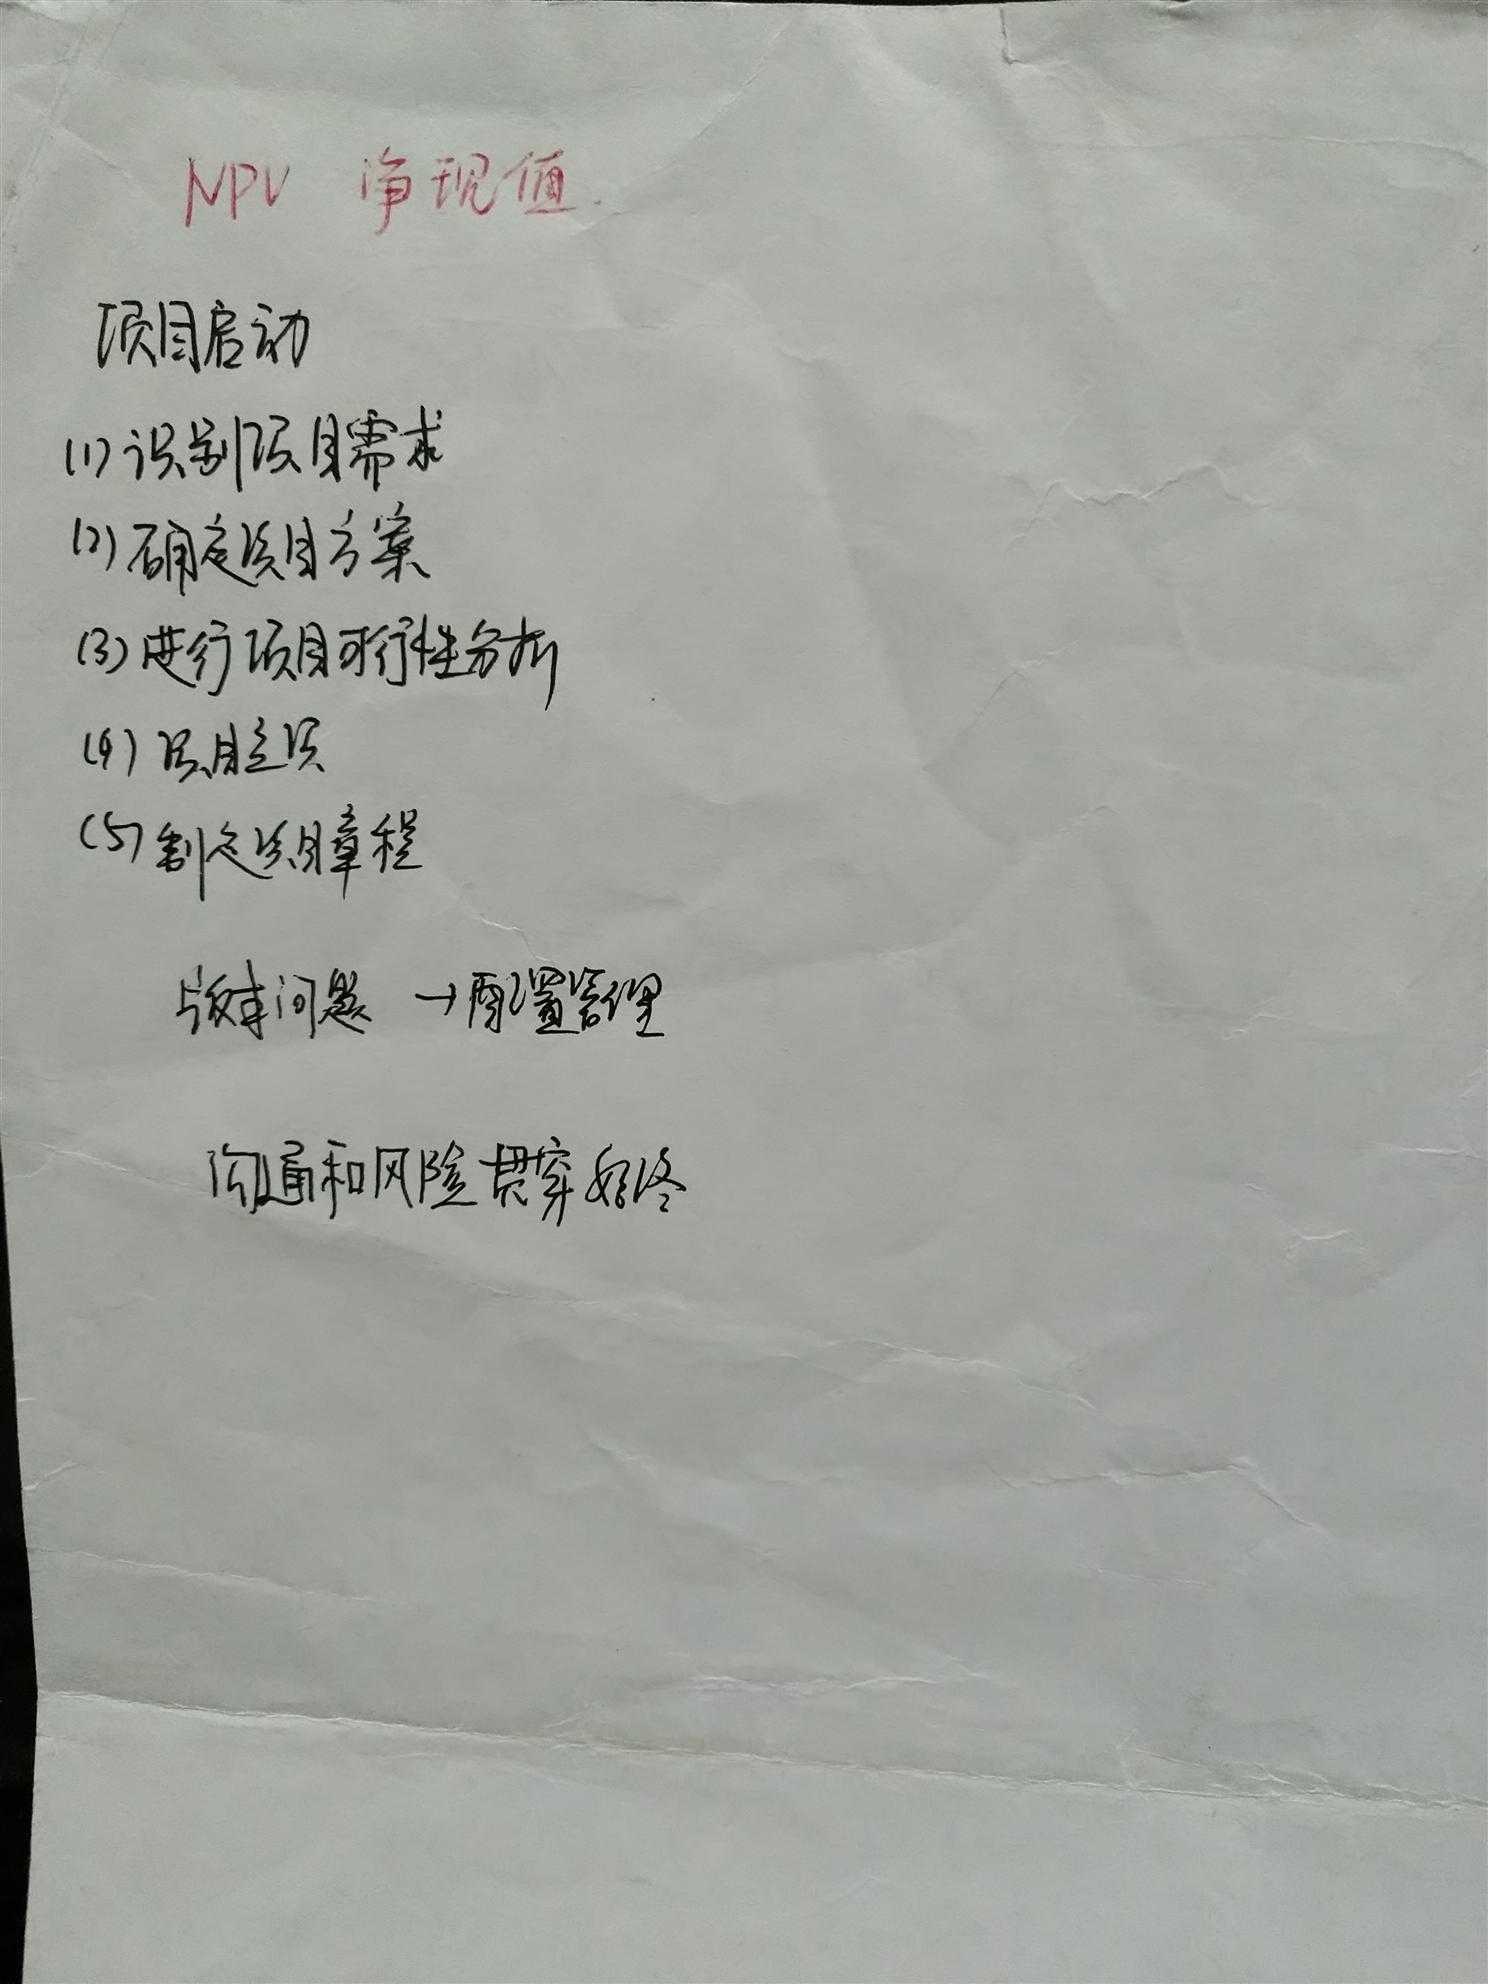 NPV 净现值
项目启动
(1) 识别项目需求
(2) 确定项目方案
(3) 进行项目可行性分析
(4) 项目立项
(5) 制定项目章程
版本问题 →配置管理
沟通和风险贯穿始终